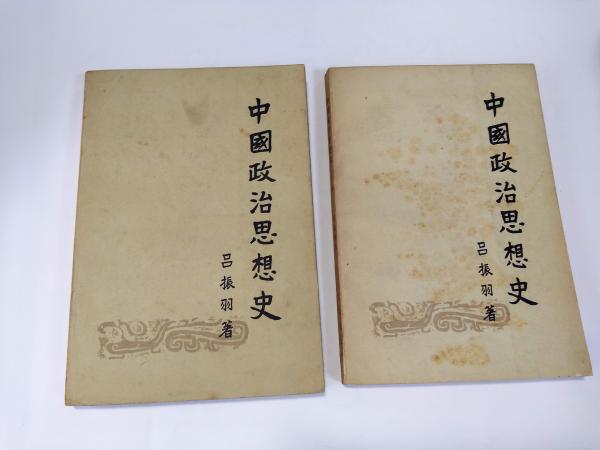 中國政治思想史
吕振羽著
中國政治思想史
吕振羽著